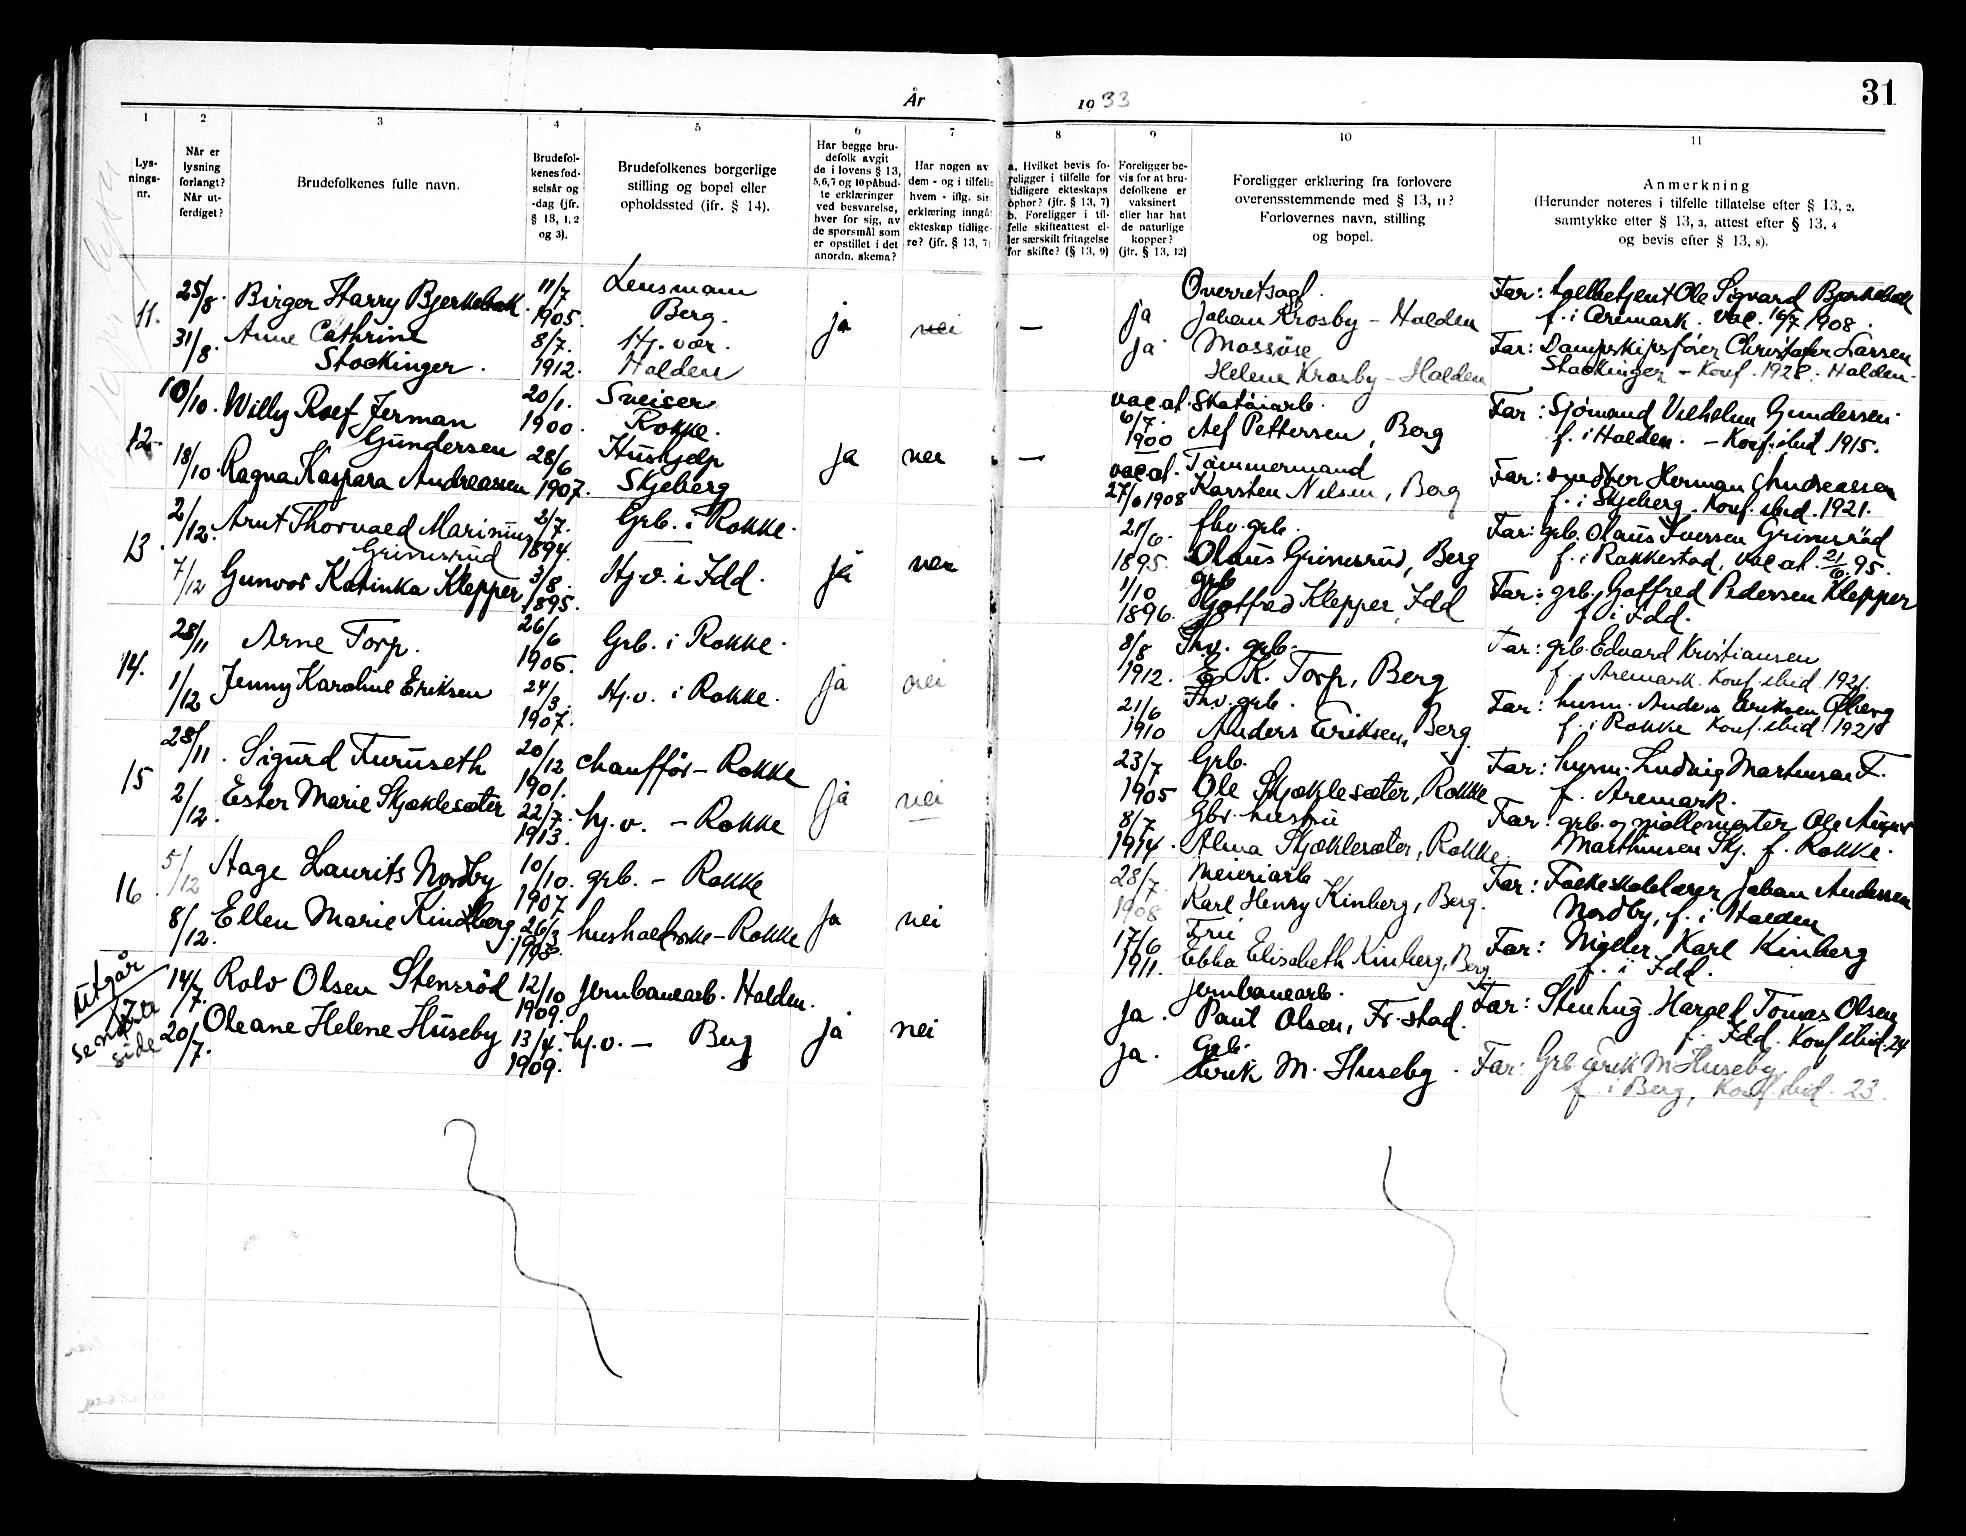 31
År 1933
1 2 3 4 5 6 7 8 9 10 11
Lys-
nings-
nr.
Når er
lysning
forlangt?
Når ut-
ferdiget?
Brudefolkenes fulle navn.
Brudefol-
kenes fød-
selsår og
-dag (jfr.
§ 13, 1, 2
og 3).
Brudefolkenes borgerlige
stilling og bopel eller
opholdssted (ifr. § 14).
Har begge bru-
defolk avgit
de i lovens § 13,
5,6,7 og 10 påbud-
te erklæringer
ved besvarelse,
hver for sig, av
de spørsmål som
er opstillet i det
anordn. skema?
Har nogen av
dem - og i tilfelle
hvem - iflg. sin
erklæring inngåt
ekteskap tidlige-
re? (jfr. § 13, 7)
a. Hvilket bevis fo-
religger i tilfelle for
tidligere ekteskaps
ophør? (jfr. § 13, 7)
b. Foreligger i til-
felle skifteattest el-
ler særskilt fritagelse
for skifte? (§ 13, 9)
Foreligger be-
vis for at bru-
defolkene er
vaksinert
eller har hat
de naturlige
kopper?
(jfr. § 13, 12)
Foreligger erklæring fra forlovere
overensstemmende med § 13, 11?
Forlovernes navn, stilling
og bopel.
Anmerkning
(Herunder noteres i tilfelle tillatelse efter § 13, 2,
samtykke efter § 13, 3, attest efter § 13, 4
og bevis efter § 13, 8).
11. 25/8. Birger Harry Bjerkebæk. 11/7 1905. Lensmann Berg. ja nei — ja Overretssagf. Johan Krosby - Halden Far: tollbetjent Ole Sigvard Bjerkebæk
f. i Aremark. Vac. 16/7 1908.
31/8. Anne Cathrine Stockinger. 8/7. 1912. Hj.vær. Halden ja Massöse Helene Krosby - Halden Far: Dampskipsfører Christofer Larsen
Stockinger - Konf. 1928. Halden.
12. 10/10. Willy Roef Jerman Gundersen 20/1. 1900. Sveiser Rokke. ja nei — vac.at. 6/7. 1900 Skotøiarb. Alf Pettersen, Berg Far: Sjømand Vilhelm Gundersen.
f. i Halden. - Konf. ibid 1915.
18/10 Ragna Kaspara Andreassen 28/6 1907. Hushjelp Skjeberg vac.at. 27/6 1908 Tømmermand Karsten Nilsen, Berg Far: Herman Andreassen
f. i Skjeberg. Konf. ibid. 1921.
13. 2/12. Arnt Thorvald Marinius Grimsrud 2/7. 1894. Grb. i Rokke. ja nei 21/6. 1895. fhv. grb. Olaus Grimsrud, Berg Far: grb. Olaus Iversen Grimsröd
f. i Rakkestad, Vac at. 21/6.95.
7/12 Gunvor Katinka Klepper 3/8. 1895. Hj.v. i Idd. 1/10 1896. grb Gotfred Klepper, Idd Far: grb. Gotfred Pedersen Klepper
f. i Idd.
14. 28/11 Arne Torp. 26/6 1906. Grb. i Rokke. ja nei 8/8 1912. Fhv. grb. E. K. Torp, Berg Far: grb. Edvard Kristiansen
f. i Aremark. Konf. ibid 1921.
1/12 Jenny Karoline Eriksen 24/3. 1907. Hj.v. i Rokke. 21/6 1910 Fhv. grb. Anders Eriksen, Berg Far: husm. Anders Eriksen
f. i Rokke Konf. ibid 1921
15 28/11. Sigurd Furuseth 20/12 1901. chauffør - Rokke ja nei 23/7 1905 Grb. Ole Skjæklesæter, Rokke Far: husm. Ludvig Martinsen F.
f. Aremark.
2/12. Ester Marie Skjæklesæter 22/7. 1913. hj.v. - Rokke 8/7 1914. Gbr. hustru Alma Skjæklesæter, Rokke Far: grb. og møllemester Ole August
Marthinsen Skj. f. Rokke.
16. 5/12 Aage Laurits Nordby 10/10. 1907 grb. - Rokke ja nei 28/7. 1908 Meieriarb Karl Henry Kinberg, Berg. Far: Folkeskolelærer Johan Andersen
Nordby, f. i Halden
8/12. Ellen Marie Kindberg. 26/3 hush - Rokke 17/6 1911. Fru Ebba Elisabeth Kinberg, Berg. Far: Karl Kinberg
f. i Idd.
Utgår
Se neste
side
14/7. Rolv Olsen Stensröd 12/10 1909. jernbanearb. Halden. ja nei ja. jernbanearb. Paul Olsen, Fr.stad. Far: Stenhug. Harald Tomas Olsen
f. Idd. Konf ibid. 24
20/7. Oleane Helene Huseby 13/4. 1909. hj.v. - Berg ja. Grb. Erik M. Huseby. Far: Grb Erik M Huseby.
f. i Berg, Konf. ibid. 23.